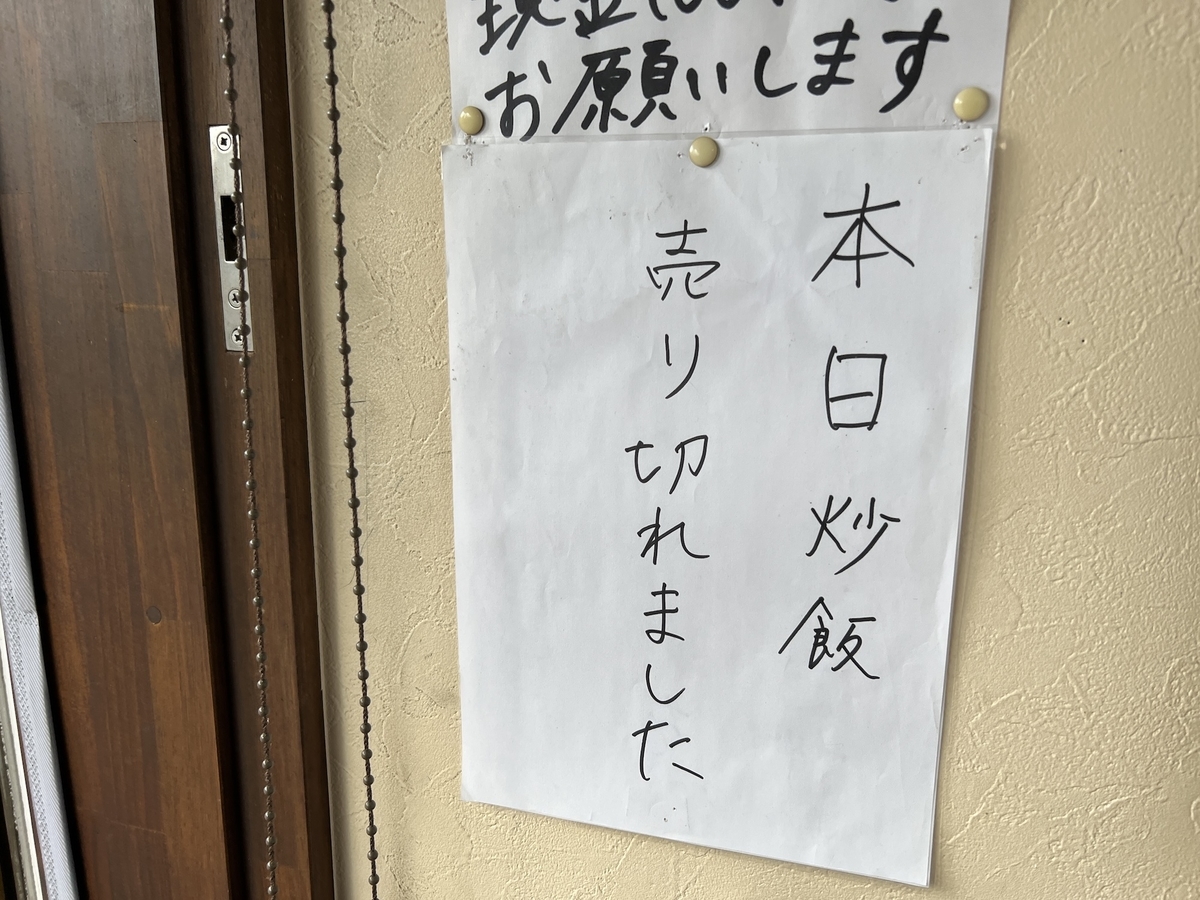 現金
お願いします
本日炒飯
売り切れました